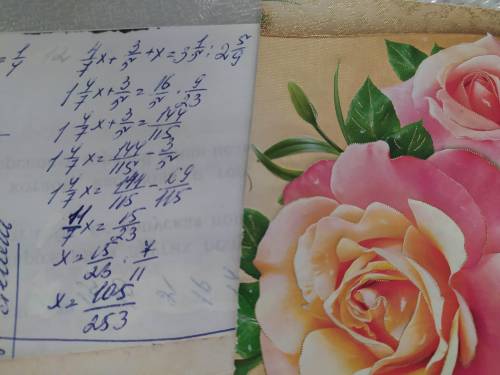 = 1/4 12 4/7 x + 3/5 + x = 3 1/5 : 2 5/9
1 4/7 x + 3/5 = 16/5 · 9/23
1 4/7 x + 3/5 = 144/115
1 4/7 x = 144/115 - 3/5
1 4/7 x = 144/115 - 69/115
11/7 x = 15/23
x = 15/23 · 7/11
x = 105/253